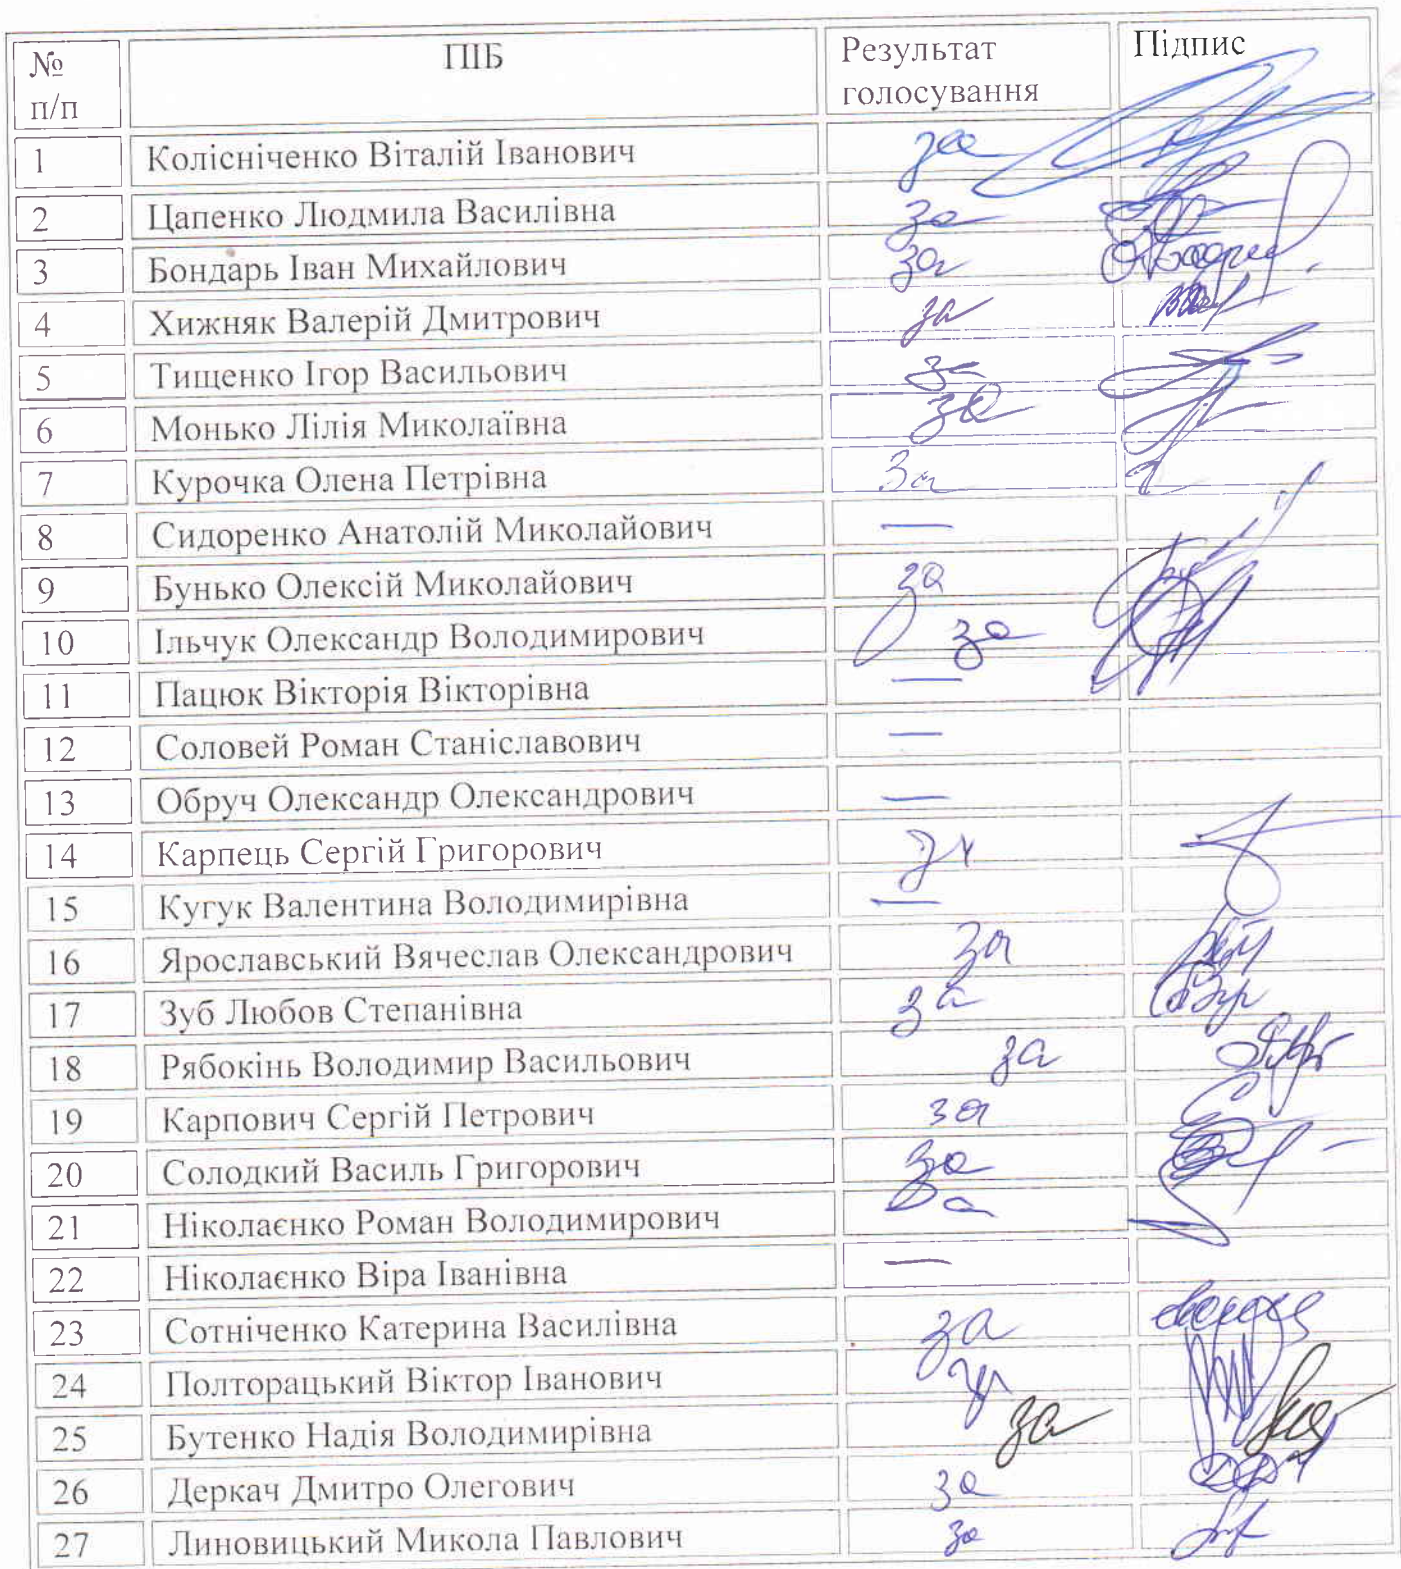 № п/п ПІБ Результат голосування Підпис
1 Колісніченко Віталій Іванович за
2 Цапенко Людмила Василівна за
3 Бондарь Іван Михайлович за
4 Хижняк Валерій Дмитрович за
5 Тищенко Ігор Васильович за
6 Монько Лілія Миколаївна за
7 Курочка Олена Петрівна За
8 Сидоренко Анатолій Миколайович —
9 Бунько Олексій Миколайович за
10 Ільчук Олександр Володимирович за
11 Пацюк Вікторія Вікторівна —
12 Соловей Роман Станіславович —
13 Обруч Олександр Олександрович —
14 Карпець Сергій Григорович за
15 Кугук Валентина Володимирівна —
16 Ярославський Вячеслав Олександрович за
17 Зуб Любов Степанівна за
18 Рябокінь Володимир Васильович за
19 Карпович Сергій Петрович за
20 Солодкий Василь Григорович за
21 Ніколаєнко Роман Володимирович за
22 Ніколаєнко Віра Іванівна —
23 Сотніченко Катерина Василівна за
24 Полторацький Віктор Іванович за
25 Бутенко Надія Володимирівна за
26 Деркач Дмитро Олегович за
27 Линовицький Микола Павлович за